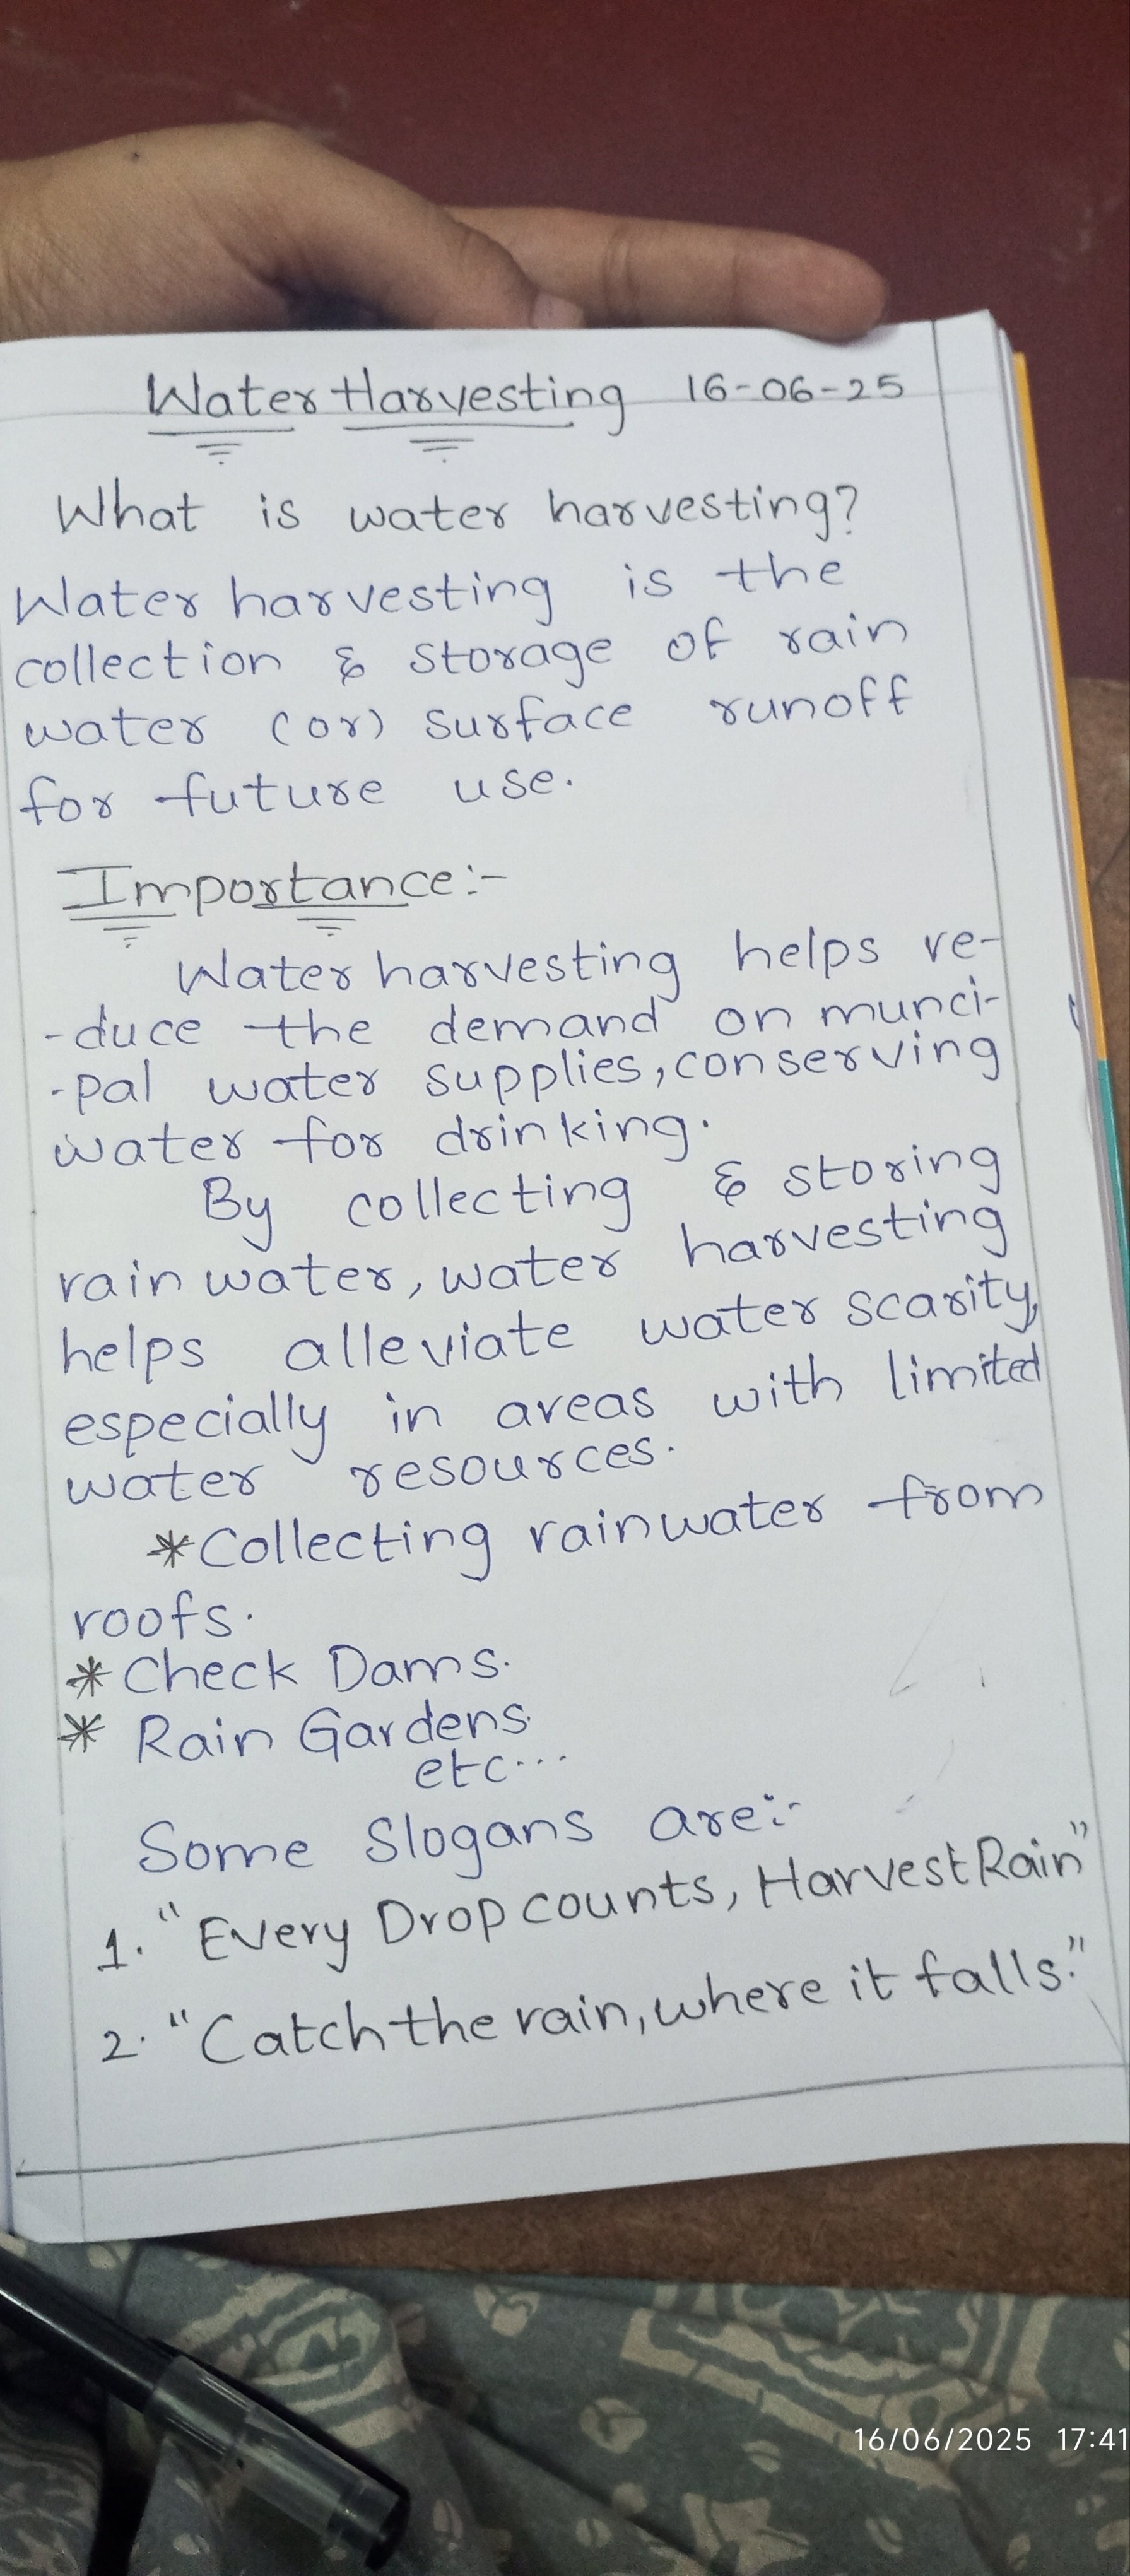 Water Harvesting 16-06-25
What is water harvesting?
Water harvesting is the
collection & storage of rain
water (or) surface runoff
for future use.
Importance:-
Water harvesting helps re-
-duce the demand on munci-
-pal water supplies, conserving
water for drinking.
By collecting & storing
rain water, water harvesting
helps alleviate water scarity,
especially in areas with limited
water resources.
*Collecting rainwater from
roofs.
* Check Dams.
* Rain Gardens.
etc...
Some Slogans are:-
1. "Every Drop counts, Harvest Rain"
2. "Catch the rain, where it falls."
16/06/2025 17:41